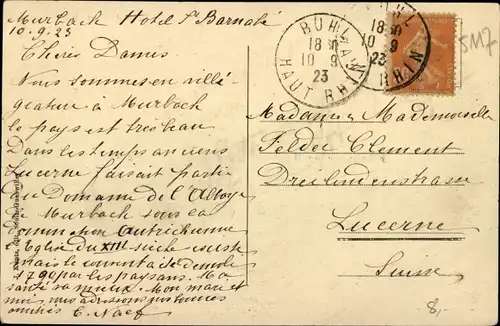 Murbach Hotel St Barnabé
10.9.23
Chères Dames
Nous sommes en villé-
giature à Murbach
le pays est très beau
Dans les temps anciens
Lucerne faisait partie
du Domaine de l'Abbaye
Murbach sous la
Autrichienne
Eglise du XIII siècle existe
mais le couvent a été démoli
1790 par les paysans. Ma
santé va mieux. Mon mari et
moi vos adressons nos bonnes
amitiés E. Naef
BUHL
18 30
10 9
23
HAUT RHIN
18 30
10 9
23
RHIN
5M7
Madame & Mademoiselle
Felder Clement
Dreilindenstrasse
Lucerne
Suisse
8,-